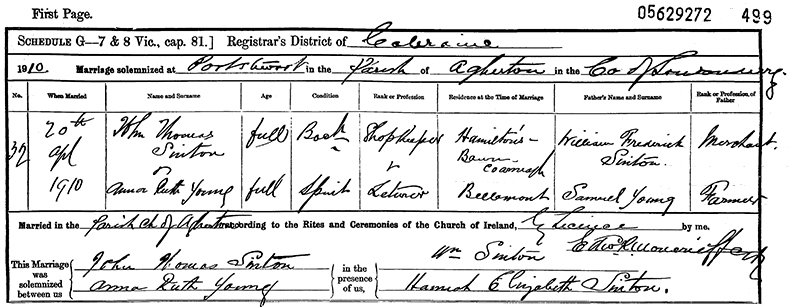 First Page.
05629272 499
SCHEDULE G—7 & 8 Vic., cap. 81.] Registrar's District of Coleraine
1910. Marriage solemnized at Portstewart in the Parish of Agherton in the Co of Londonderry.
No. When Married Name and Surname Age Condition Rank or Profession Residence at the Time of Marriage Father's Name and Surname Rank or Profession of Father
32 20th Apl 1910 John Thomas Sinton full Bach Shopkeeper Hamilton's-Bawn William Frederick Sinton Merchant
Anna Ruth Young full Spinst Bellemont Samuel Young Farmer
Married in the Parish Ch of Agherton according to the Rites and Ceremonies of the Church of Ireland, by Licence by me.
This Marriage was solemnized between us John Thomas Sinton in the presence of us, Wm Sinton
Anna Ruth Young Hannah Elizabeth Sinton.